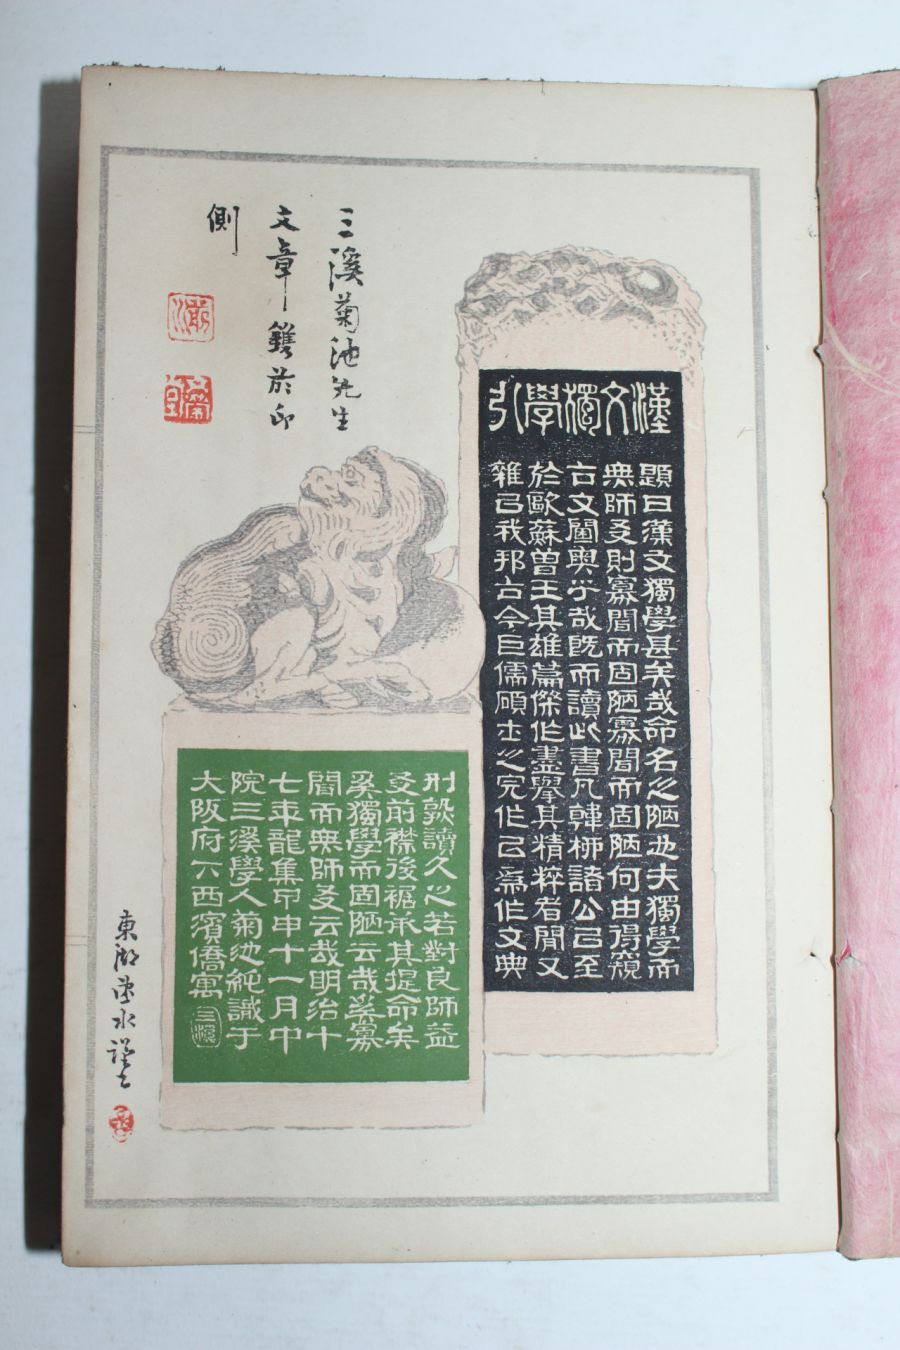 漢文獨學引
題曰漢文獨學甚矣哉命名之陋也夫獨學而
無師友則寡聞而固陋寡聞而固陋何由得窺
古文閫奧乎哉既而讀此書凡韓柳諸公已至
於歐蘇曾王其雄篇傑作盡擧其精粹者間又
雜已我邦古今巨儒碩士之完作已為作文典
刑敦讀久之若對良師益
友前襟後裾承其提命矣
奚獨學而固陋云哉奚寡
聞而無師友云哉明治十
七年龍集甲申十一月中
院三溪學人菊池純識于
大阪府下西濱僑寓
三溪
三溪菊池先生
文章鐫於印
側
東湖